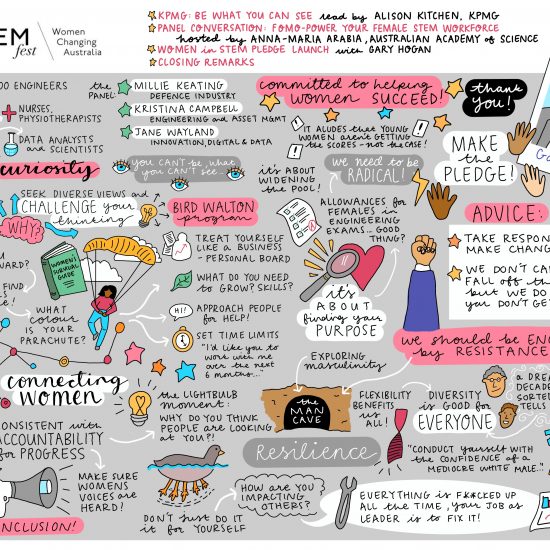 EM
fest
Women
Changing
Australia
KPMG: BE WHAT YOU CAN SEE read by ALISON KITCHEN, KPMG
PANEL CONVERSATION: FOMO-POWER YOUR FEMALE STEM WORKFORCE
hosted by ANNA-MARIA ARABIA, AUSTRALIAN ACADEMY of SCIENCE
WOMEN in STEM PLEDGE LAUNCH with GARY HOGAN
CLOSING REMARKS
00 ENGINEERS
NURSES,
PHYSIOTHERAPISTS
DATA ANALYSTS
and SCIENTISTS
the
PANEL
MILLIE KEATING
DEFENCE INDUSTRY
KRISTINA CAMPBELL
ENGINEERING and ASSET MGMT
JANE WAYLAND
INNOVATION, DIGITAL & DATA
curiosity
you CAN'T be what
you CAN'T see...
SEEK DIVERSE VIEWS and
CHALLENGE your
thinking
WHY?
BIRD WALTON
program
WOMEN'S
SURVIVAL
GUIDE
WARD?
FIND
ES
E?
WHAT
colour
IS YOUR
PARACHUTE?
TREAT YOURSELF
LIKE a BUSINESS
- PERSONAL BOARD
WHAT DO YOU NEED
to GROW? SKILLS?
HI!
APPROACH PEOPLE
for HELP!
SET TIME LIMITS
"I'd like you to
work with me
over the next
6 months..."
committed to helping
women SUCCEED!
IT ALUDES that YOUNG
WOMEN aren't GETTING
the SCORES - not the CASE!
it's ABOUT
WIDENING
the POOL!
we need to be
RADICAL!
ALLOWANCES for
FEMALES in
ENGINEERING
EXAMS... GOOD
THING?
it's
ABOUT
finding your
PURPOSE
thank
you!
MAKE
the
PLEDGE!
G
ADVICE:
TAKE RESPON
MAKE CHANG
WE DON'T CA
FALL off th
but WE DO
YOU DON'T GE
we should be EN
by RESISTANCE
connecting
WOMEN
CONSISTENT with
ACCOUNTABILITY
for PROGRESS
MAKE SURE
WOMENS
VOICES are
HEARD?
INCLUSION!
the LIGHTBULB
moment:
WHY DO YOU THINK
PEOPLE are LOOKING
at YOU?!
DON'T just DO it
it for YOURSELF
HOW are YOU
IMPACTING
OTHERS?
EXPLORING
masculinity
the
MAN
CAVE
Resilience
FLEXIBILITY
BENEFITS
us ALL!
DIVERSITY
is GOOD for
EVERYONE
a DREA
DECADE
SORTED
TELLS
"CONDUCT yourself WITH
the CONFIDENCE of a
MEDIOCRE WHITE MALE."
EVERYTHING is F#*CKED UP
ALL the TIME, your JOB as
LEADER is to FIX it!